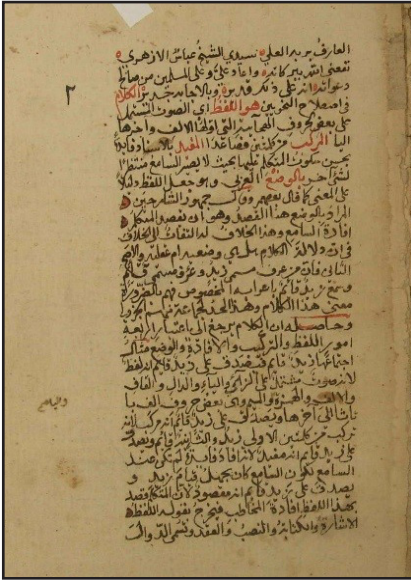 العارف بربه العلي سيدي الشيخ عباس الازهري
نفعني الله ببركاته واعاد علي وعلى المسلمين من صالح
دعواته انه على ذلك قدير وبالاجابة جدير الكلام
٢
في اصطلاح النحويين هو اللفظ اي الصوت المشتمل
على بعض حروف الهجائية التي اولها الالف واخرها
اليا المركب من كلمتين فصاعدا المفيد بالاسناد فايدة
يحسن سكوت المتكلم عليها بحيث لا يصير السامع منتظرا
لشي اخر بالوضع العربي وهو جعل اللفظ دليلا
على المعنى كما قال بعضهم وقال جمهور الشارحين
المراد بالوضع هنا القصد وهو ان يقصد المتكلم
افادة السامع وهذا الخلاف له التفات الى الخلاف
في ان دلالة الكلام هل هي وضعية ام عقلية والاصح
الثاني فان من عرف مسمى زيد وعرف مسمى قائم
وسمع زيد قائم باعرابه المخصوص فهم بالضرورة
معنى هذا الكلام وهذا الحد لجماعة منهم الجزولي
وحاصله ان الكلام يرجع الى اعتبار اربعة
امور اللفظ والتركيب والافادة والوضع مثال
اجتماعها زيد قائم فيصدق على زيد قائم انه لفظ
لانه صوت مشتمل على الزاي والياء والدال والقاف
والالف والهمزة والميم وهي بعض حروف الف با
تا ثا الى اخرها ويصدق على زيد قائم انه مركب لانه
تركب من كلمتين الاولى زيد والثانية قائم ويصدق
على زيد قائم انه مفيد لانه افاد فايدة لم تكن عند
السامع لكون السامع كان يجهل قيام زيد و
يصدق على زيد قائم انه مقصود لان المتكلم قصد
بهذا اللفظ افادة المخاطب فخرج بقوله اللفظ
الاشارة والكتابة والنصب والعقد وتسمى الدوال